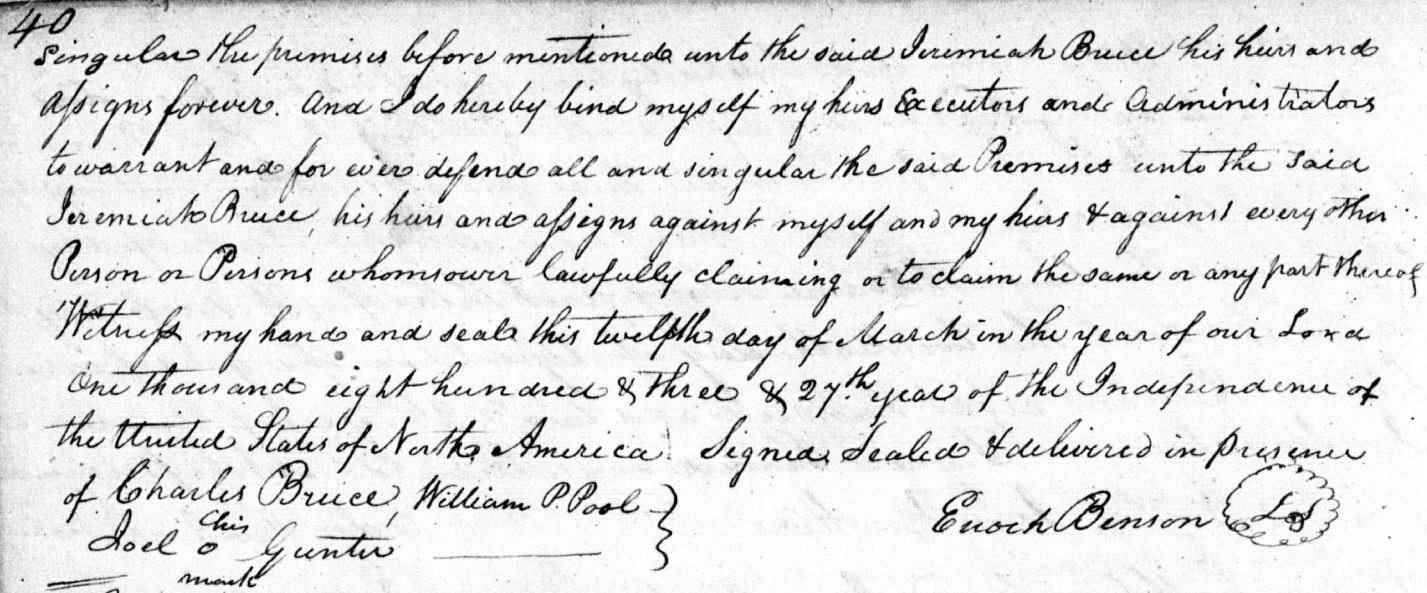 40
Singular the premises before mentioned unto the said Jeremiah Bruce his heirs and
Assigns forever. And I do hereby bind myself my heirs Executors and Administrators
to warrant and for ever defend all and singular the said Premises unto the said
Jeremiah Bruce, his heirs and assigns against myself and my heirs & against every other
Person or Persons whomsoever lawfully claiming or to claim the same or any part thereof
Witness my hand and seal this twelfth day of March in the year of our Lord
One thousand eight hundred & three & 27th year of the Independence of
the United States of North America. Signed, Sealed & delivered in presence
of Charles Bruce, William P. Pool
Enoch Benson LS
his
Joel o Gunter
mark